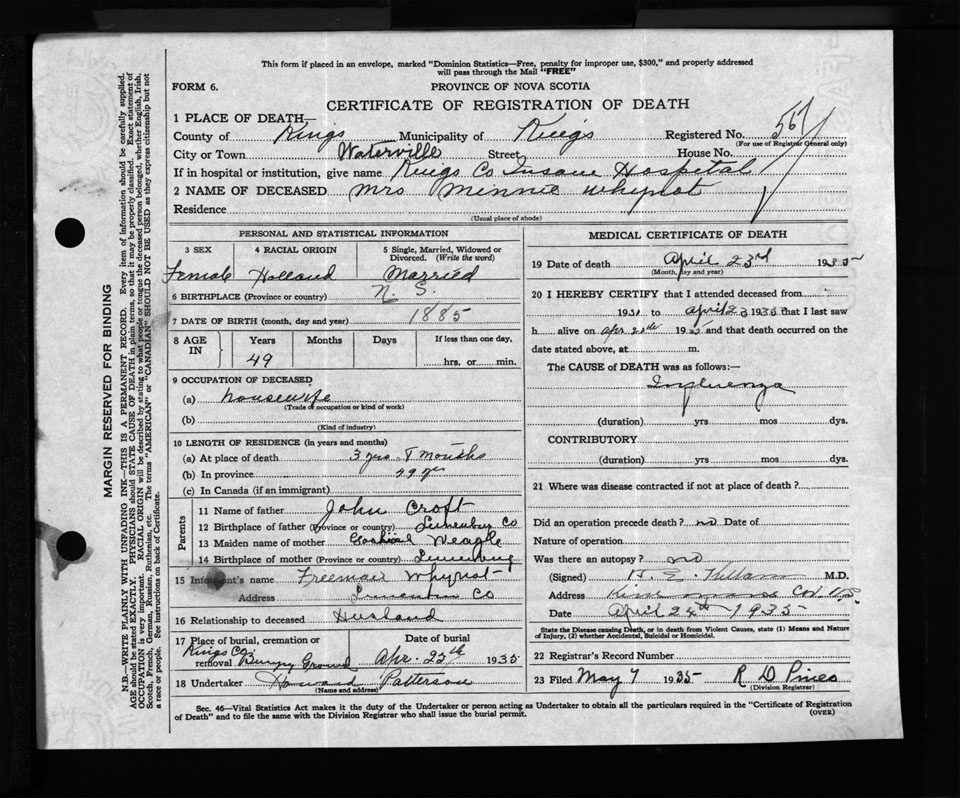 This form if placed in an envelope, marked "Dominion Statistics—Free, penalty for improper use, $300," and properly addressed
will pass through the Mail "FREE"
FORM 6.
PROVINCE OF NOVA SCOTIA
CERTIFICATE OF REGISTRATION OF DEATH
1 PLACE OF DEATH,—
County of Kings Municipality of Kings Registered No. 567
(For use of Registrar General only)
City or Town Waterville Street House No.
If in hospital or institution, give name Kings Co Insane Hospital
2 NAME OF DECEASED Mrs Minnie Whynot
Residence
(Usual place of abode)
PERSONAL AND STATISTICAL INFORMATION
3 SEX 4 RACIAL ORIGIN 5 Single, Married, Widowed or Divorced. (Write the word)
Female Holland Married
6 BIRTHPLACE (Province or country) N. S.
7 DATE OF BIRTH (month, day and year) 1885
8 AGE IN Years Months Days If less than one day,
49 hrs. or min.
9 OCCUPATION OF DECEASED
(a) housewife
(Trade or occupation or kind of work)
(b)
(Kind of industry)
10 LENGTH OF RESIDENCE (in years and months)
(a) At place of death 3 yrs 8 months
(b) In province 49 yrs
(c) In Canada (if an immigrant)
Parents
11 Name of father John Croft
12 Birthplace of father (Province or country) Lunenburg Co
13 Maiden name of mother Weagle
14 Birthplace of mother (Province or country) Lunenburg
15 Informant's name Freeman Whynot
Address Co
16 Relationship to deceased Husband
17 Place of burial, cremation or removal Kings Co. Ground
Date of burial Apr. 25th 1935
18 Undertaker Howard Patterson
(Name and address)
MEDICAL CERTIFICATE OF DEATH
19 Date of death April 23rd 1935
(Month, day and year)
20 I HEREBY CERTIFY that I attended deceased from
1931 to April 23 1935 that I last saw
h alive on Apr 20th 1935 and that death occurred on the
date stated above, at m.
The CAUSE of DEATH was as follows:—
Influenza
(duration) yrs mos dys.
CONTRIBUTORY
(duration) yrs mos dys.
21 Where was disease contracted if not at place of death?
Did an operation precede death? no Date of
Nature of operation
Was there an autopsy? no
(Signed) H. E. Killam M.D.
Address
Date April 24th 1935
State the Disease causing Death, or in death from Violent Causes, state (1) Means and
Nature of Injury, (2) whether Accidental, Suicidal or Homicidal.
22 Registrar's Record Number
23 Filed May 7 1935 R D Pineo
(Division Registrar)
Sec. 46—Vital Statistics Act makes it the duty of the Undertaker or person acting as Undertaker to obtain all the particulars required in the "Certificate of Registration
of Death" and to file the same with the Division Registrar who shall issue the burial permit.
(OVER)
MARGIN RESERVED FOR BINDING
N.B.—WRITE PLAINLY WITH UNFADING INK—THIS IS A PERMANENT RECORD. Every item of information should be carefully supplied.
AGE should be stated EXACTLY. PHYSICIANS should STATE CAUSE OF DEATH in plain terms, so that it may be properly classified. Exact statement of
OCCUPATION is very important. RACIAL ORIGIN will be described by stating to what people or tongue the deceased person belonged, whether English, Irish,
Scotch, French, German, Russian, Ruthenian, etc. The terms "AMERICAN" or "CANADIAN" SHOULD NOT BE USED as they express citizenship but not
a race or people. See instructions on back of Certificate.